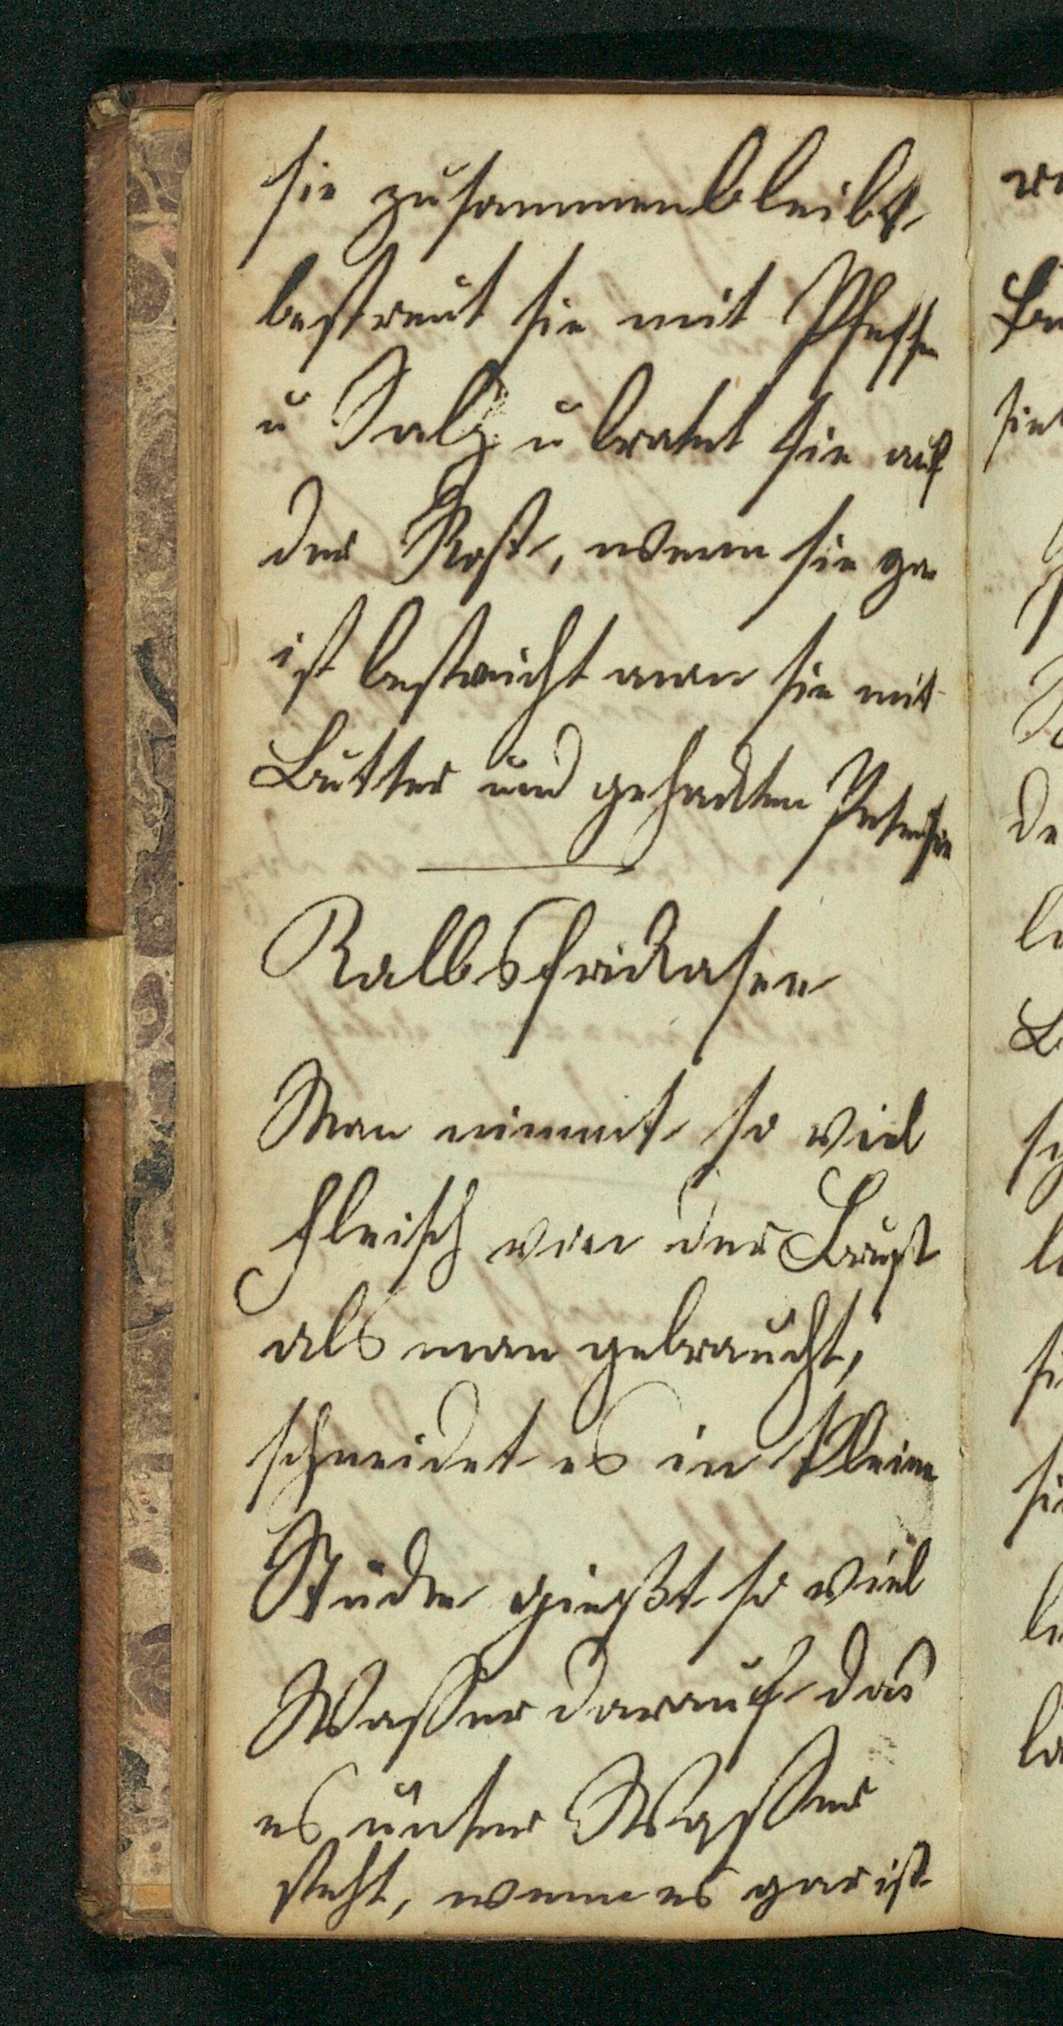 sie zusammenbleibt
bestreut sie mit Pfeffer
u Salz u bratet sie auf
der Rost, wenn sie gar
ist bestreicht man sie mit
Butter und gehackten Petersie
Kalbsfrickasee
Man nimmt so viel
Fleisch von der Brust
als man gebraucht,
schneidet es in kleine
Stücke gießt so viel
Wasser darauf das
es unter Wasser
steht, wenn es gar ist